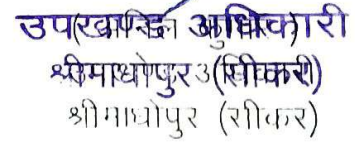 उपखण्ड अधिकारी
श्रीमाधोपुर (सीकर)
श्रीमाधोपुर (सीकर)